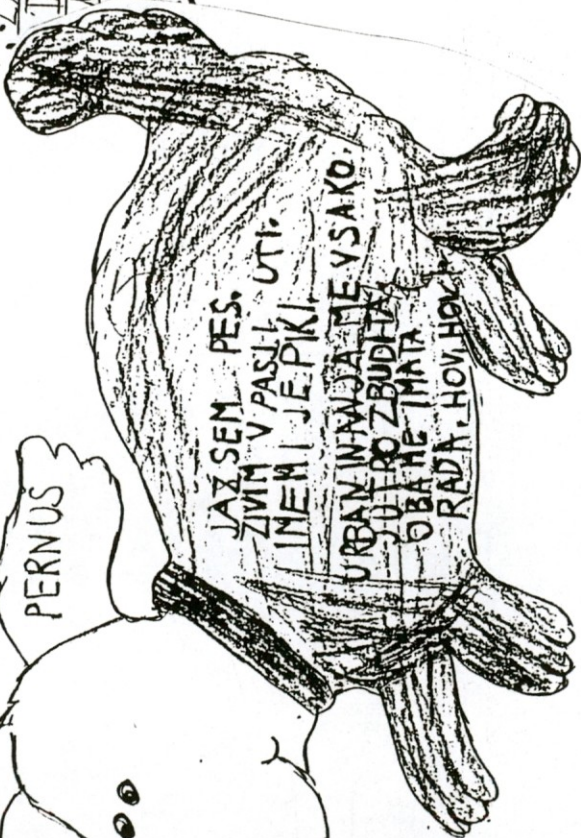 PERNUS
JAZ SEM PES.
ŽIVIM V PASJI UTI.
IME MI JE PIKI.
URBAN IN ANJA ME VSAKO
JUTRO ZBUDITA.
OBA ME IMATA
RADA. HOV, HOV